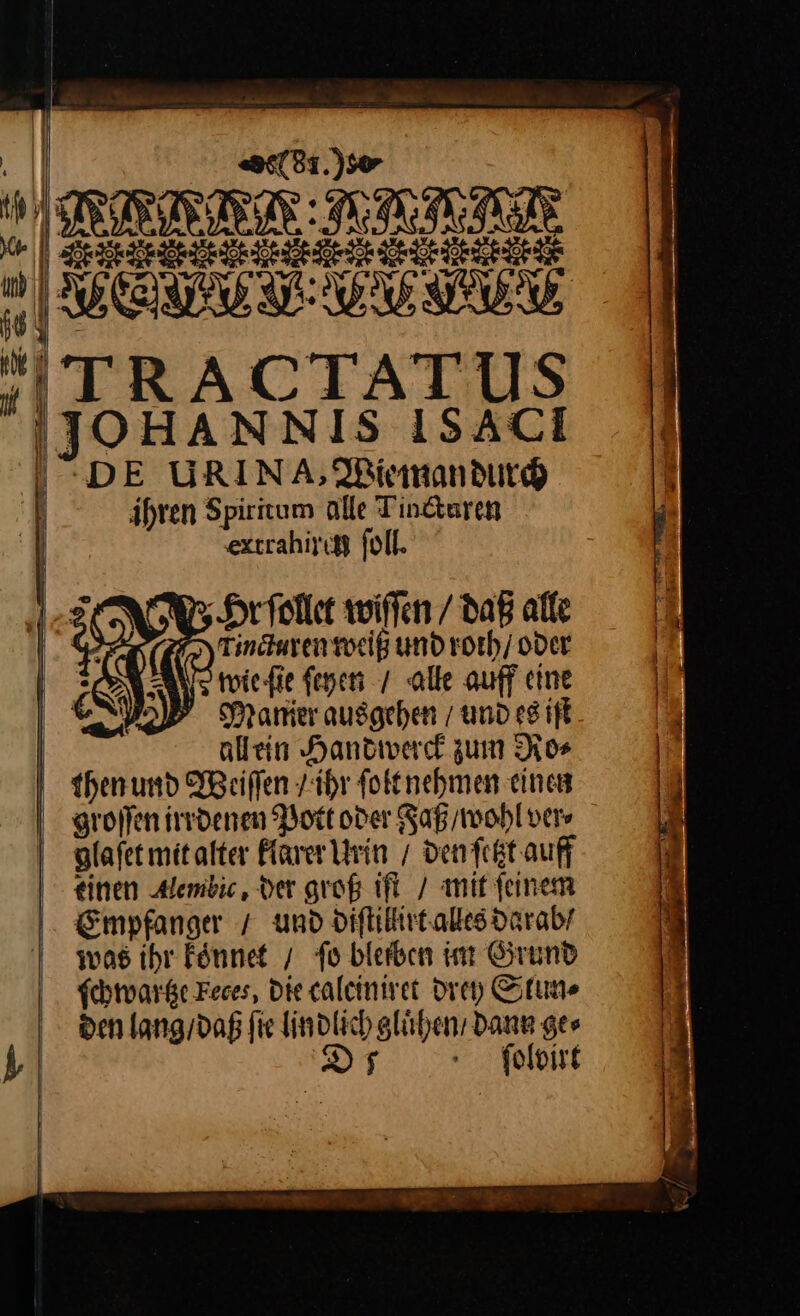 (81.)
TRACTATUS
JOHANNIS ISACI
DE URINA, Wie man durch
ihren Spiritum alle Tincturen
extrahiren ſoll.
IHr ſollet wiſſen / daß alle
Tincturen weiß und roth / oder
wie ſie ſeyen / alle auff eine
Manier ausgehen / und es iſt
all ein Handwerck zum Ro⸗
then und Weiſſen / ihr ſolt nehmen einen
groſſen irrdenen Pott oder Faß / wohl ver⸗
glaſet mit alter klarer Urin / den ſetzt auff
einen Alembic, der groß iſt / mit ſeinem
Empfanger / und diſtillirt alles darab /
was ihr koͤnnet / ſo bleiben im Grund
ſchwartze Feces, die calciniret drey Stun⸗
den lang / daß ſie lindlich gluͤhen / dann ge⸗
D 5 ſolvirt